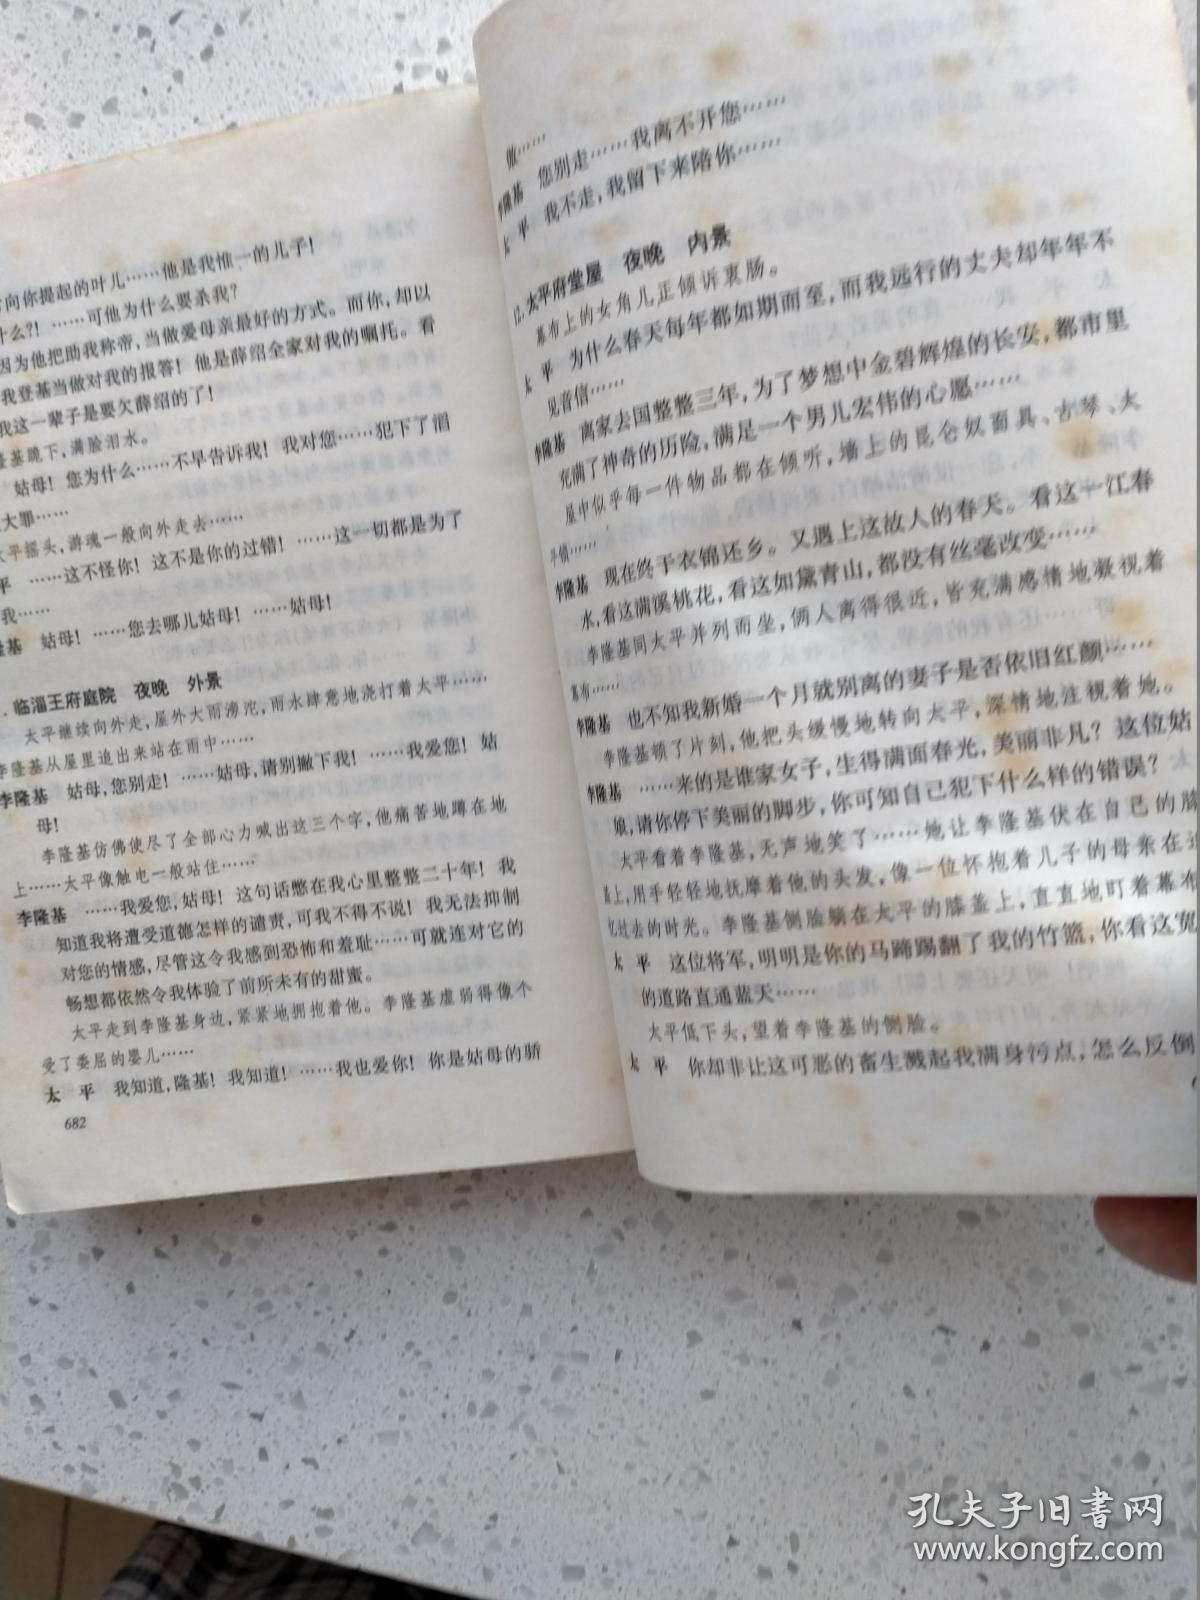 向你提起的叶儿……他是我惟一的儿子！
什么?！……可他为什么要杀我？
因为他把助我称帝,当做爱母亲最好的方式。而你,却以
我登基当做对我的报答！他是薛绍全家对我的嘱托。看
我这一辈子是要欠薛绍的了！
隆基跪下,满脸泪水。
姑母！您为什么……不早告诉我！我对您……犯下了滔
大罪……
太平摇头,游魂一般向外走去……
平　……这不怪你！这不是你的过错！……这一切都是为了
我……
隆基　姑母！……您去哪儿姑母！……姑母！
临淄王府庭院　夜晚　外景
太平继续向外走,屋外大雨滂沱,雨水肆意地浇打着太平……
李隆基从屋里追出来站在雨中……
李隆基　姑母,您别走！……姑母,请别撇下我！……我爱您！姑
母！
李隆基仿佛使尽了全部心力喊出这三个字,他痛苦地蹲在地
上……太平像触电一般站住……
李隆基　……我爱您,姑母！这句话憋在我心里整整二十年！我
知道我将遭受道德怎样的谴责,可我不得不说！我无法抑制
对您的情感,尽管这令我感到恐怖和羞耻……可就连对它的
畅想都依然令我体验了前所未有的甜蜜。
太平走到李隆基身边,紧紧地拥抱着他。李隆基虚弱得像个
受了委屈的婴儿……
太　平　我知道,隆基！我知道！……我也爱你！你是姑母的骄
682
傲……
李隆基　您别走……我离不开您……
太　平　我不走,我留下来陪你……
12.太平府堂屋　夜晚　内景
幕布上的女角儿正倾诉衷肠。
太　平　为什么春天每年都如期而至,而我远行的丈夫却年年不
见音信……
李隆基　离家去国整整三年,为了梦想中金碧辉煌的长安,都市里
充满了神奇的历险,满足一个男儿宏伟的心愿……
屋中似乎每一件物品都在倾听,墙上的昆仑奴面具、古琴、火
斗锁……
李隆基　现在终于衣锦还乡。又遇上这故人的春天。看这一江春
水,看这满溪桃花,看这如黛青山,都没有丝毫改变……
李隆基同太平并列而坐,俩人离得很近,皆充满感情地凝视着
幕布……
李隆基　也不知我新婚一个月就别离的妻子是否依旧红颜……
李隆基顿了片刻,他把头缓慢地转向太平,深情地注视着她。
李隆基　……来的是谁家女子,生得满面春光,美丽非凡？这位姑
娘,请你停下美丽的脚步,你可知自己犯下什么样的错误？
太平看着李隆基,无声地笑了……她让李隆基伏在自己的膝
盖上,用手轻轻地抚摩着他的头发,像一位怀抱着儿子的母亲在追
忆过去的时光。李隆基侧脸躺在太平的膝盖上,直直地盯着幕布
太　平　这位将军,明明是你的马蹄踢翻了我的竹篮,你看这宽
的道路直通蓝天……
太平低下头,望着李隆基的侧脸。
太　平　你却非让这可恶的畜生溅起我满身污点,怎么反倒
孔夫子旧书网
www.kongfz.com